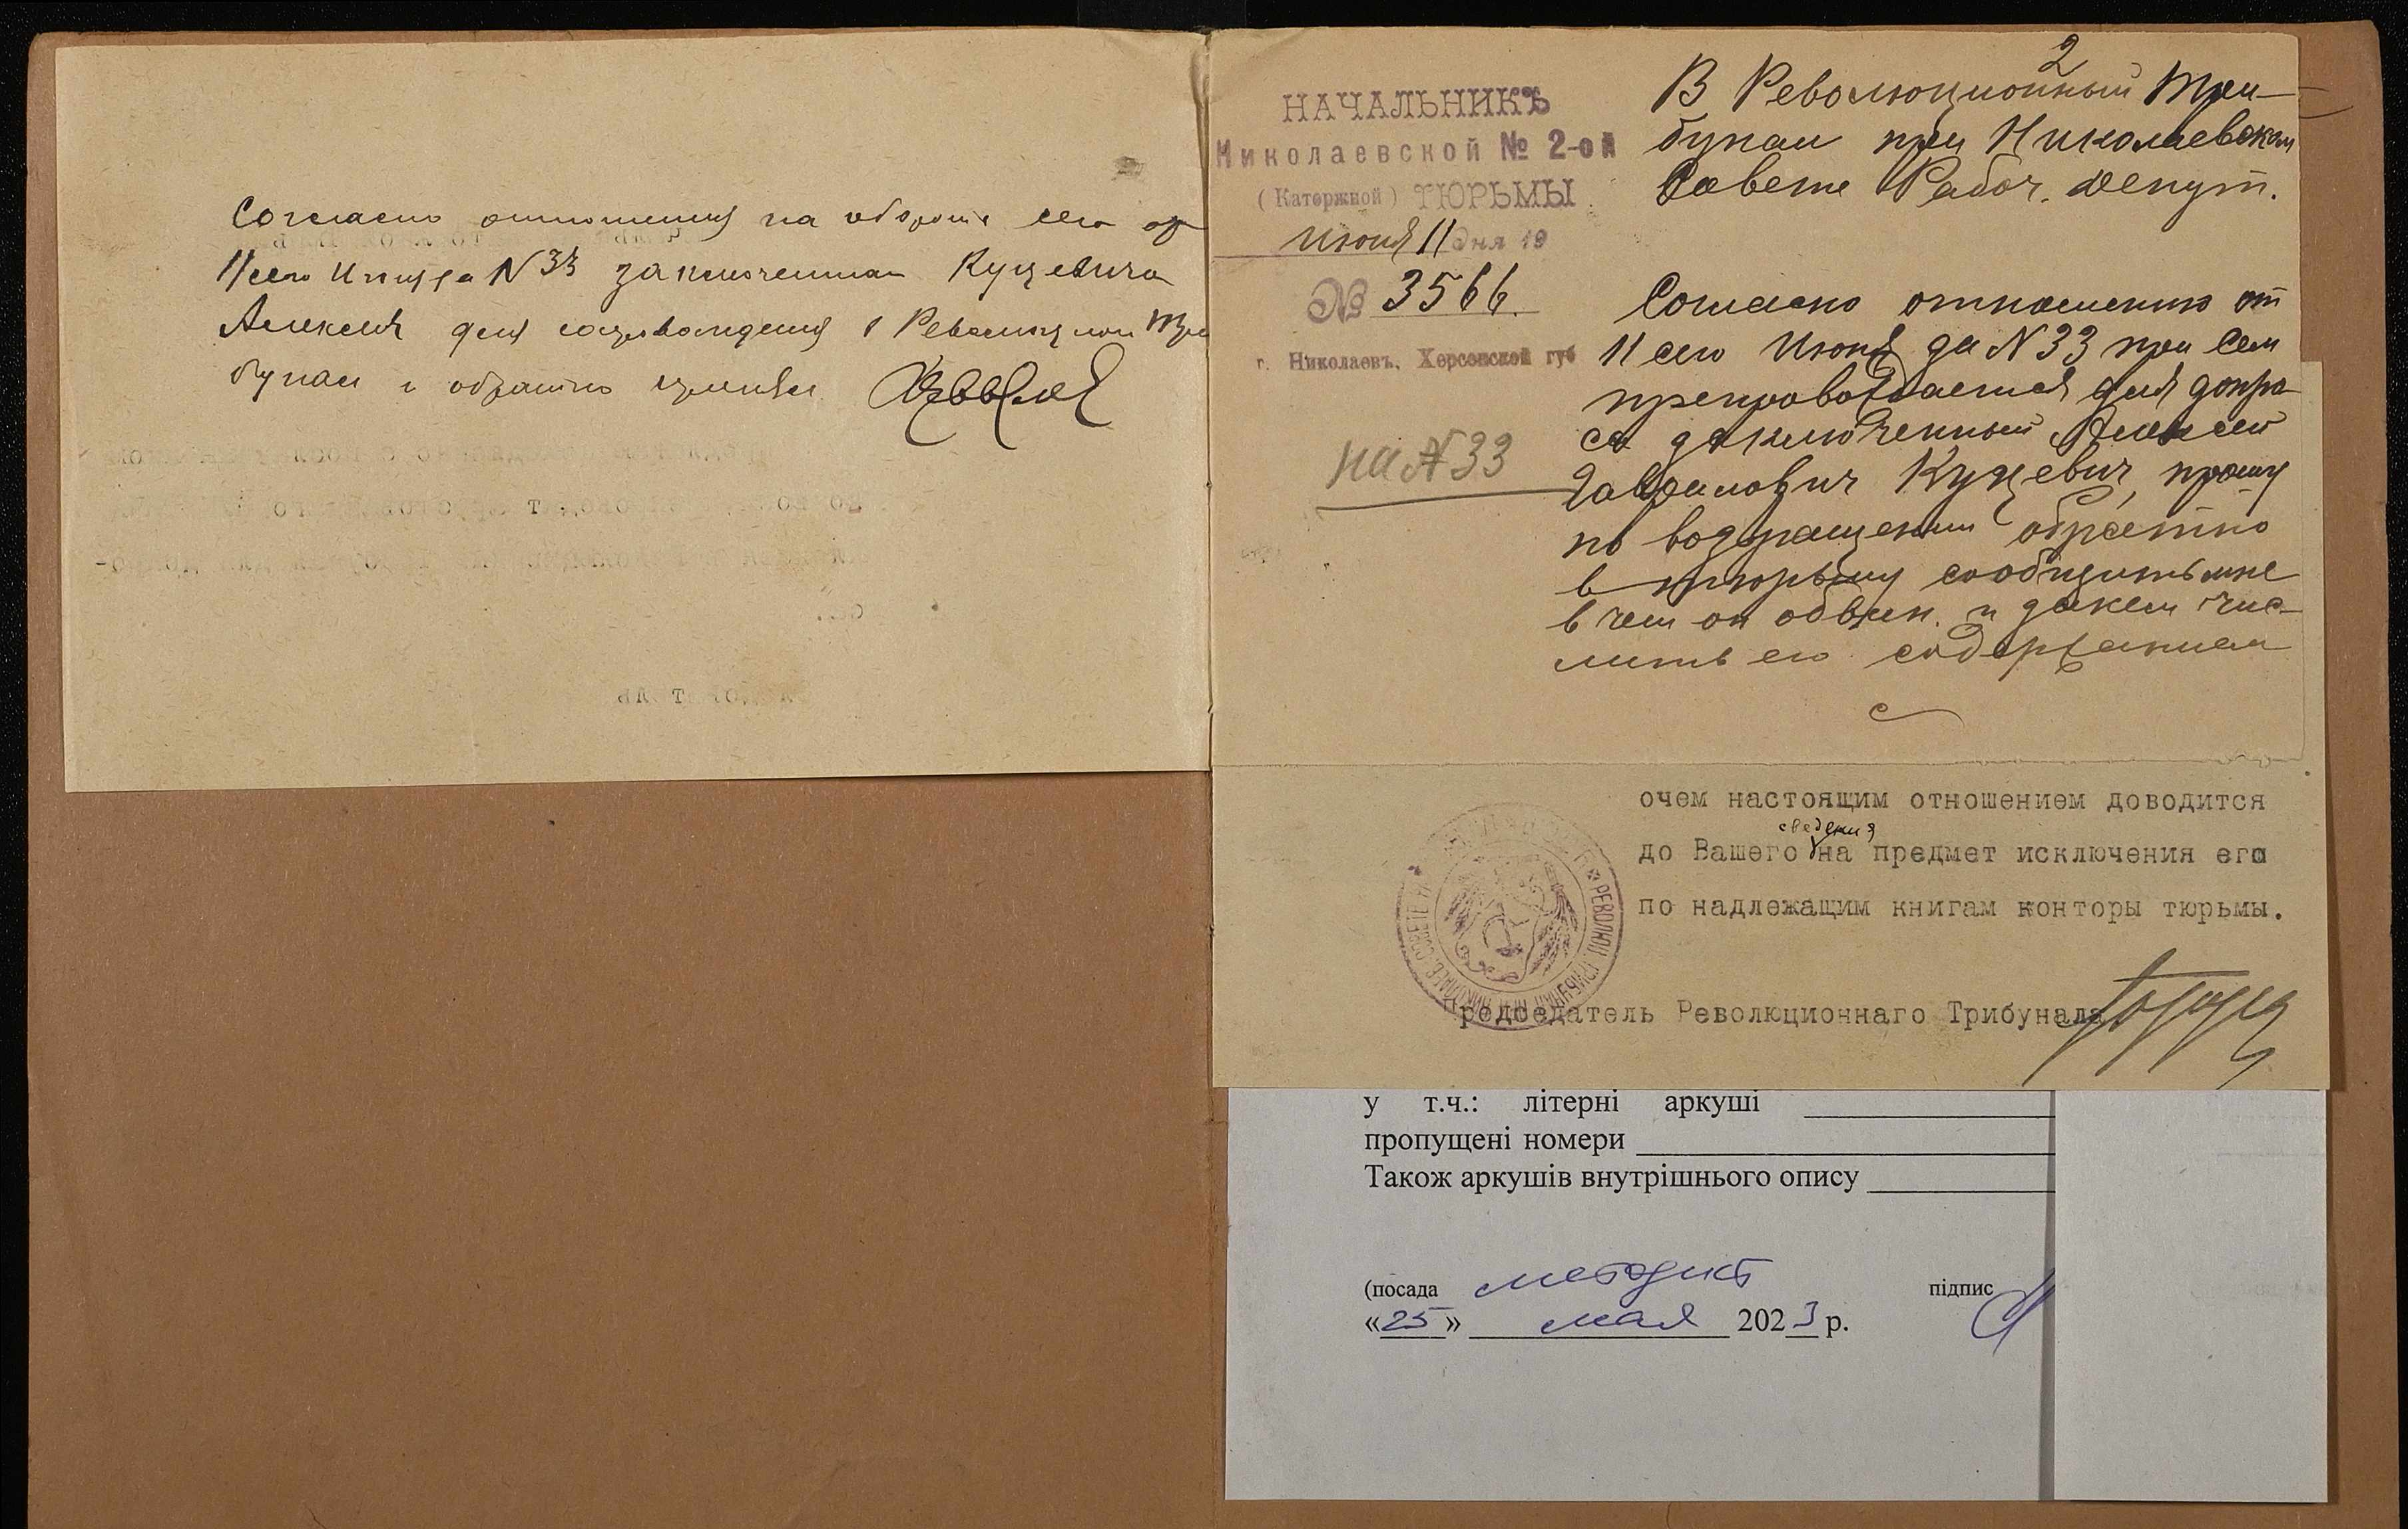 Согласно отношения на обороте сего от
11 сего Июня за N 33 заключенного Куцевича
Алексея для сопровождения в Революцион Три
бунал и обратно принял
2
НАЧАЛЬНИКЪ
Николаевской № 2-ой
(Каторжной) ТЮРЬМЫ
Июня 11 дня 19
№ 3566.
г. Николаевъ, Херсонской губ
на N 33
В Революционный Три-
бунал при Николаевском
Совете Рабоч. Депут.
Согласно отношению от
11 сего Июня за N 33 при сем
препровождается для допро-
са заключенный Алексей
Гаврилович Куцевич, прошу
по возвращении обратно
в тюрьму сообщить мне
в чем он обвин. и за кем чис-
лить его содержанием
очем настоящим отношением доводится
сведения
до Вашего на предмет исключения его
по надлежащим книгам конторы тюрьмы.
Председатель Революционнаго Трибунала
РЕВОЛЮЦ. ТРИБУНАЛ ПРИ НИКОЛАЕВ. СОВЕТЕ
у т.ч.: літерні аркуші
пропущені номери
Також аркушів внутрішнього опису
(посада методист підпис
«25» мая 2023 р.